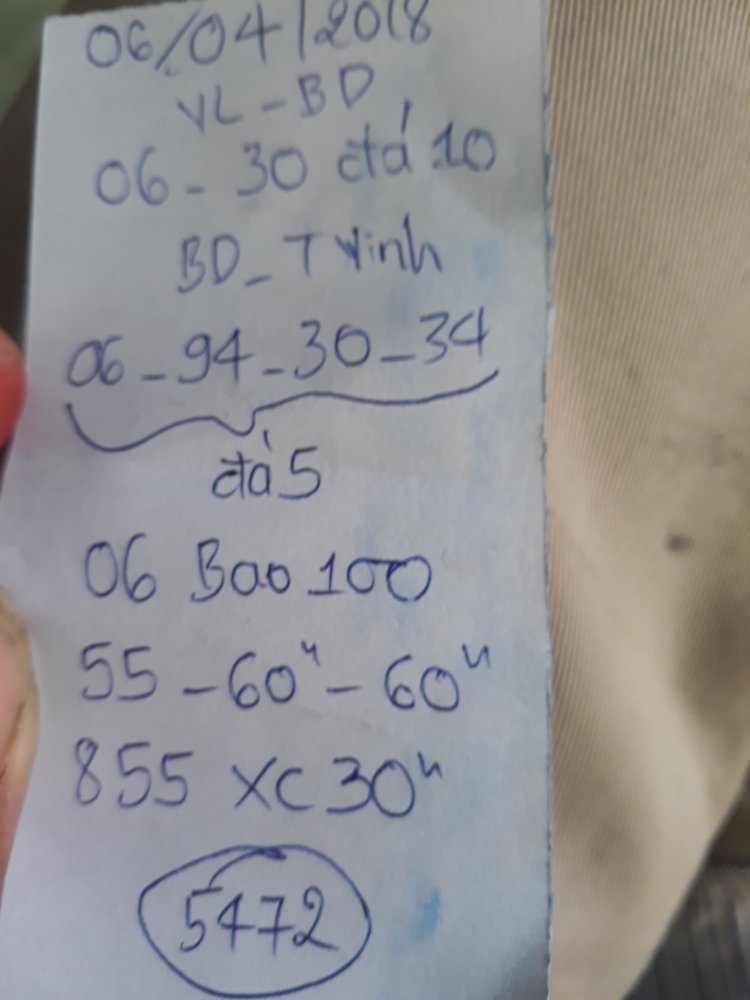 06/04/2018
VL-BD
06-30 đá 10
BD-TVinh
06-94-30-34
đá 5
06 Bao 100
55-60ⁿ-60ⁿ
855 XC 30ⁿ
5472